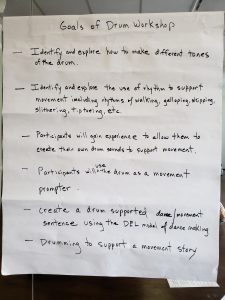 Goals of Drum Workshop
— Identify and explore how to make different tones
of the drum.
— Identify and explore the use of rhythm to support
movement including rhythms of walking, galloping, skipping,
slithering, tip toeing, etc.
— Participants will gain experience to allow them to
create their own drum sounds to support movement.
— Participants will use the drum as a movement
prompter.
— Create a drum supported dance/movement
sentence using the DEL model of dance making
— Drumming to support a movement story